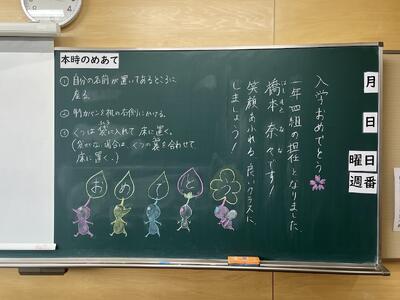 本時のめあて
① 自分の名前が置いてあるところに
座る。
② 特カバンを机の右側にかける。
③ くつは袋に入れて床に置く。
(袋がない場合は、くつの裏を合わせて
床に置く。)
おめでとう
入学おめでとう
一年四組の担任となりました
橋本奈々です!
はしもと なな
笑顔あふれる良いクラスに
しましょう!
月
日
曜日
週番